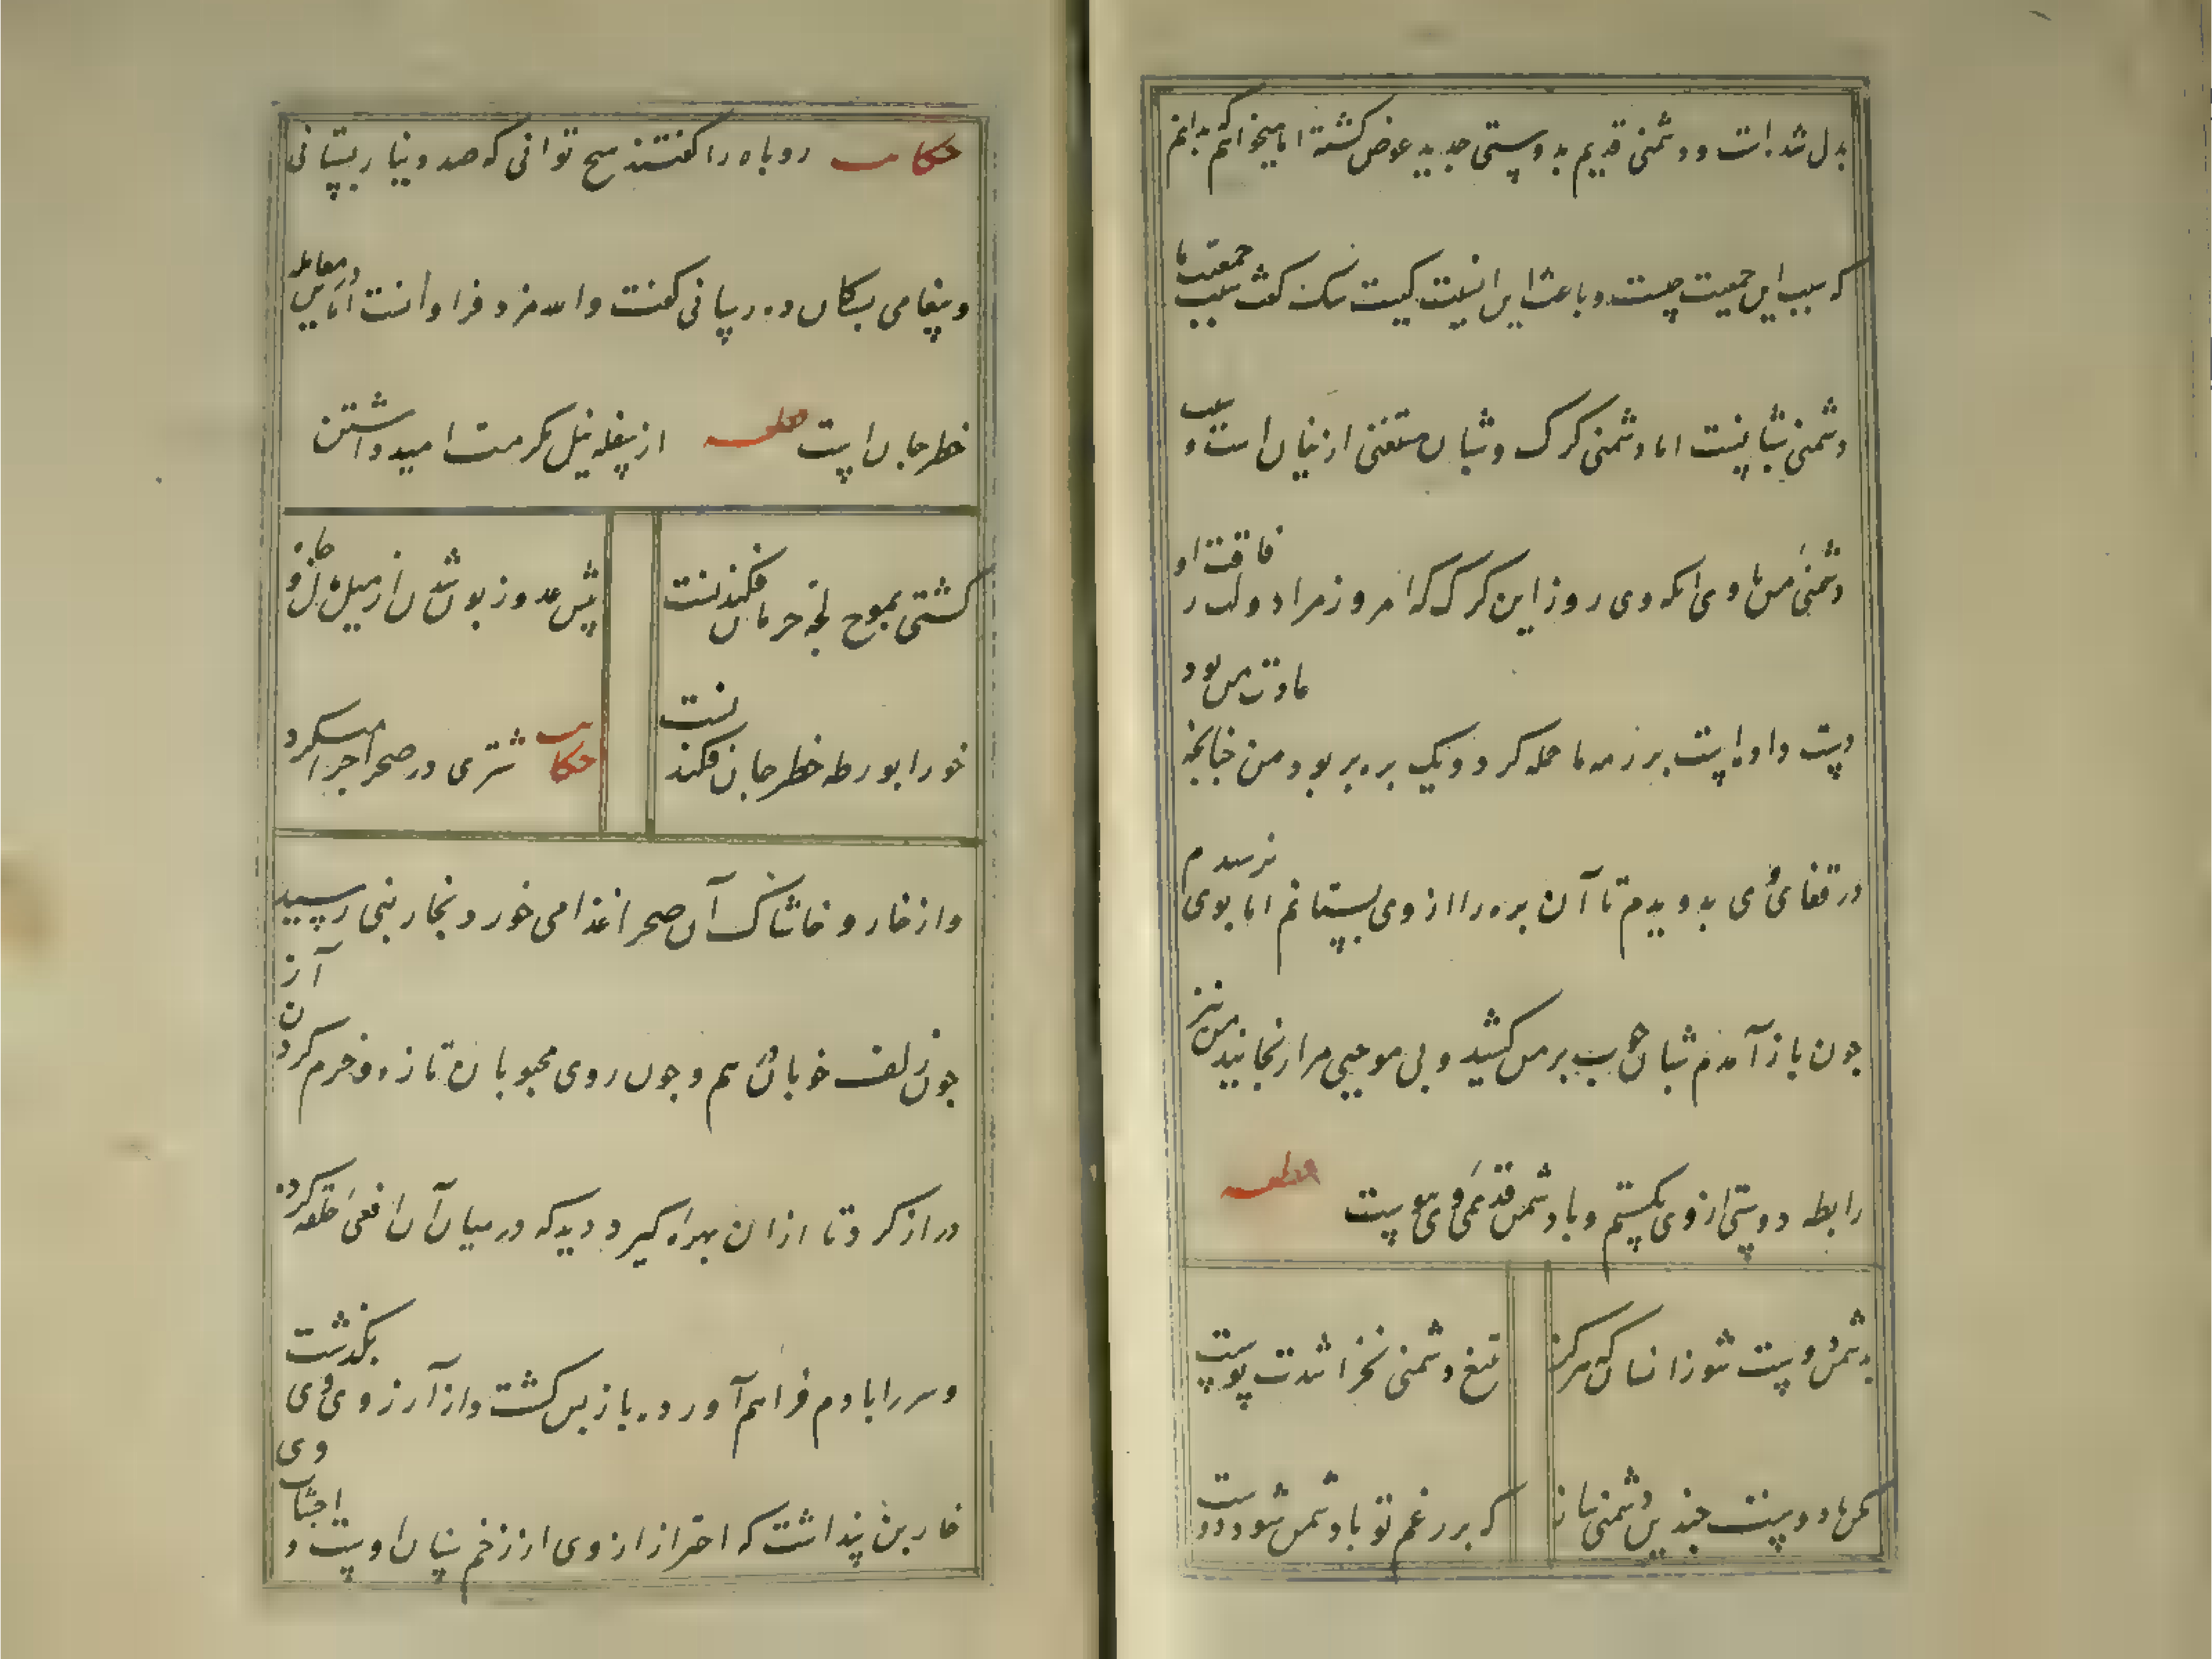 بدل شده است و دشمنی قدیم بدوستی جدید عوض کشته اما میخواهم که بدانم
که سبب این جمعیت چیست و باعث این امنیت کیست سک کفت سبب جمعیت ما
دشمنی شبانست اما دشمنی کرک و شبان مستغنی از بیان است و سبب
دشمنی من با وی آنکه دی روز این کرک که امروز مرا دولت رفاقت او
دست داده است بر رمه ما حمله کرد و یک بره بربود من چنانچه عادت من بود
در قفای وی بدویدم تا آن بره را از وی بستانم اما بوی نرسیدم
چون باز آمدم شبان چوب بر من کشید و بی موجبی مرا رنجانید من نیز
رابطه دوستی از وی بکسستم و با دشمن قدیمی وی پیوست قطعه
بدشمن دوست شو زانسان که هرکز
تیغ دشمنی نخراشدت پوست
مکن با دوست چندین دشمنی ساز
که بر رغم تو با دشمن شود دوست
حکایت روباه را کفتند هیچ توانی که صد دینار بستانی
و پیغامی بسکان ده رسانی کفت والله مزد فراوانست اما درین معامله
خطر جان است قطعه از سفله نیل مکرمت امید داشتن
کشتی بموج لجه حرمان فکندنست
پیش عدو زبون شدن از میل مال و جاه
خود را بورطه خطر جان فکندنست
حکایت شتری در صحرا چرا میکرد
و از خار و خاشاک آن صحرا غذا می خورد بخاربنی رسید
چون زلف خوبان در هم و چون روی محبوبان تازه و خرم کردن آز
دراز کرد تا از ان بهره کیرد دید که در میان آن افعی حلقه کرده
و سر را با دم فراهم آورده باز پس کشت و از آرزوی وی بکذشت
خاربن پنداشت که احتراز از وی از زخم سنان اوست و اجتناب وی